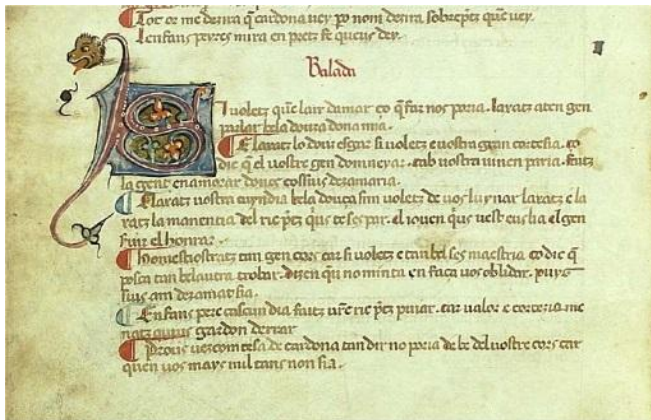 Tot ce me dezira q̃ cardona vey po nom dezira sobreptz que vey.
Lenfans peyres mira en pretz se queus dey.
Balada
Si voletz quẽ lais damar ço q̃ far nos poria. laratz aten gen
parlar bela douza dona mia.
E laratz lo douz esgar si voletz e vostra gran cortesia. co
dic q̃ el vostre gen domneyar. cab vostra vinen paria. faitz
la gent enamorar donc cossius dezamaria.
E laratz vostra cuyndia bela douça sim voletz de vos luynar laratz e la
ratz la manentia del ric ptz que te ses par. el iouen que vest eus ha el gen
fuir el honrar.
tan gen cors car si voletz e tan bel ses maestria co dic q̃
posca tan bel autra trobar. dizen qui no minta en faça vos oblidar. puys
fius am dezamar sia.
Enfans pere cascun dia faitz vr̃e ric ptz puiar. car valor e cortezia me
natz gardon derrar
Prous vezcomtesa de cardona tan dir no poria de be del vostre cors car
quen vos mays mil tans non sia.